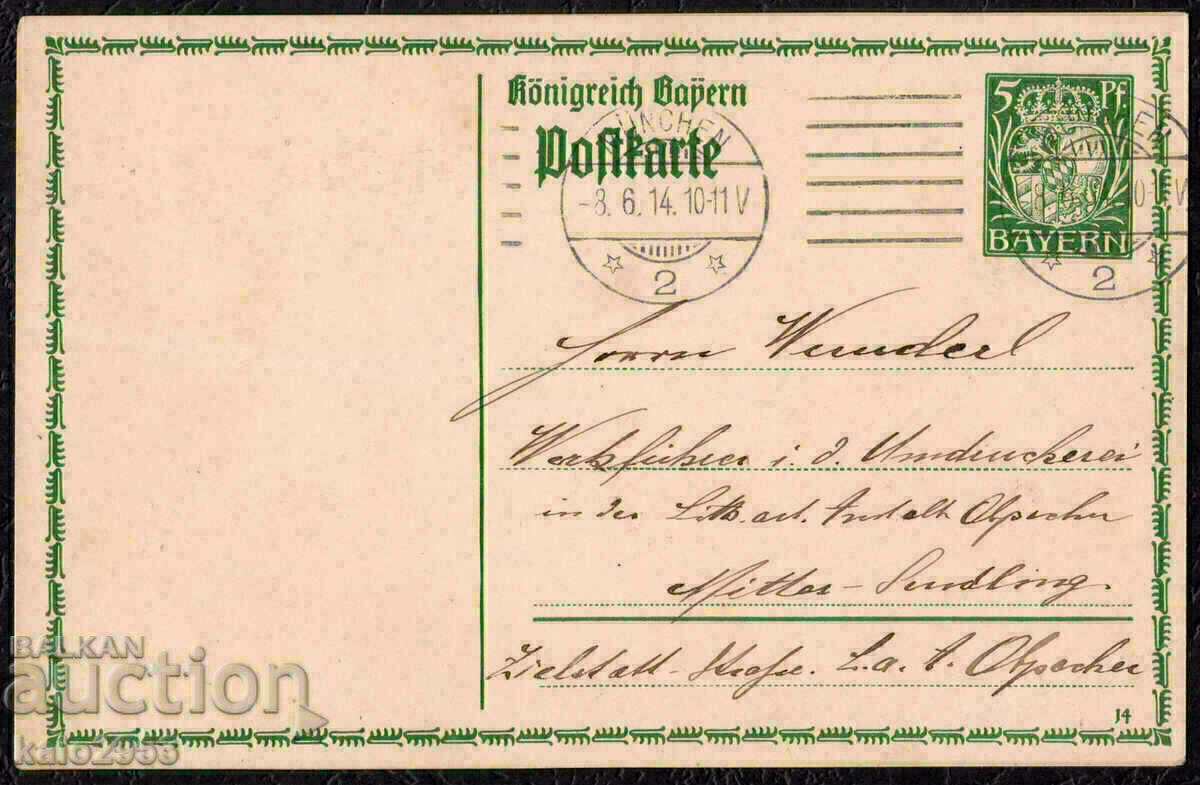 Königreich Bayern
Postkarte
5 Pf.
BAYERN
MÜNCHEN
-8. 6. 14. 10-11 V
2
2
Herrn Wunderl
Werkführer i. d. Umdruckerei
in der Lith. art. Anstalt Obpacher
Mitter-Sendling.
Zielstatt-Strasse. L. a. A. Obpacher
14
BALKAN
auction
kalo2953